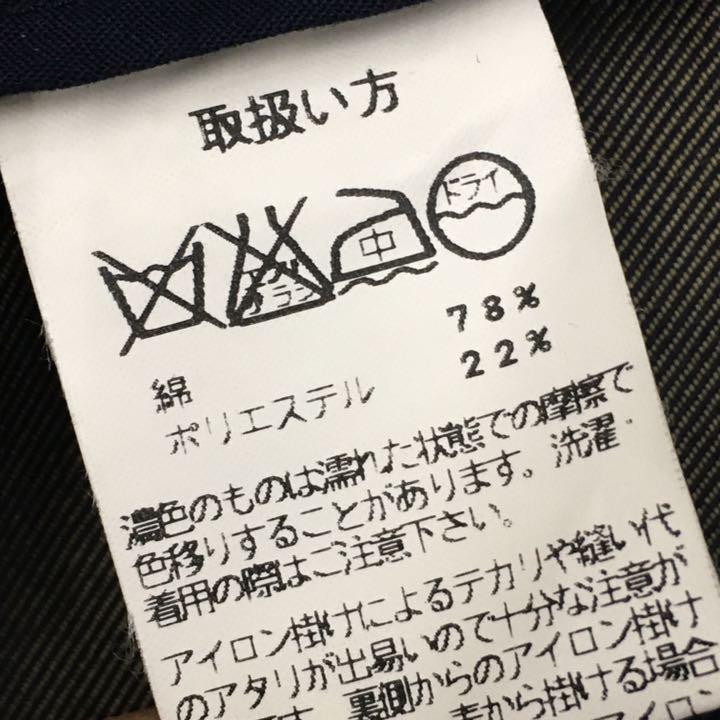 取扱い方
エンソ
サラシ
中
ドライ
綿 78%
ポリエステル 22%
濃色のものは濡れた状態での摩擦で
色移りすることがあります。洗濯・
着用の際はご注意下さい。
アイロン掛けによるテカリや縫い代
のアタリが出易いので十分な注意が
です。裏側からのアイロン掛け
表から掛ける場合
アイロン